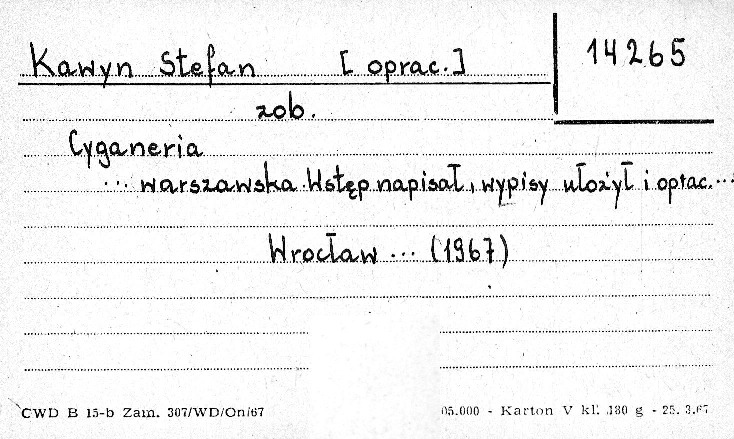 Kawyn Stefan [oprac.]
14265
zob.
Cyganeria
... warszawska. Wstęp napisał, wypisy ułożył i oprac. ...
Wrocław ... (1967)
CWD B 15-b Zam. 307/WD/On/67
05.000 - Karton V kl. 180 g - 25. 3.67